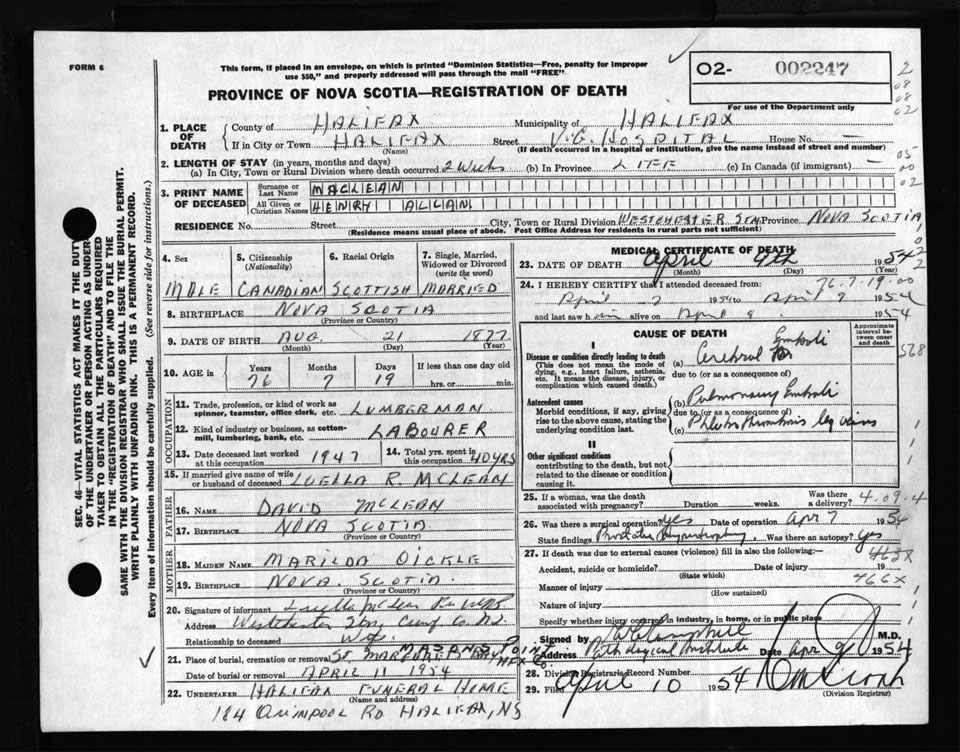 FORM 6
This form, if placed in an envelope, on which is printed "Dominion Statistics—Free, penalty for improper
use $50," and properly addressed will pass through the mail "FREE"
02- 002247
For use of the Department only
2
08
08
02
05
00
02
PROVINCE OF NOVA SCOTIA—REGISTRATION OF DEATH
1. PLACE OF DEATH
County of HALIFAX Municipality of HALIFAX
If in City or Town HALIFAX Street V.G. HOSPITAL House No. —
(Name) (If death occurred in a hospital or institution, give the name instead of street and number)
2. LENGTH OF STAY (in years, months and days)
(a) In City, Town or Rural Division where death occurred 2 Weeks (b) In Province LIFE (c) In Canada (if immigrant) —
3. PRINT NAME OF DECEASED
Surname or Last Name MACLEAN
All Given or Christian Names HENRY ALLAN
RESIDENCE No. Street City, Town or Rural Division WESTCHESTER STN Province NOVA SCOTIA
(Residence means usual place of abode. Post Office Address for residents in rural parts not sufficient)
4. Sex 5. Citizenship (Nationality) 6. Racial Origin 7. Single, Married, Widowed or Divorced (write the word)
MALE CANADIAN SCOTTISH MARRIED
8. BIRTHPLACE NOVA SCOTIA
(Province or Country)
9. DATE OF BIRTH AUG. 21 1877
(Month) (Day) (Year)
10. AGE in Years Months Days If less than one day old
76 7 19 hrs. or min.
OCCUPATION
11. Trade, profession, or kind of work as
spinner, teamster, office clerk, etc. LUMBERMAN
12. Kind of industry or business, as cotton-
mill, lumbering, bank, etc. LABOURER
13. Date deceased last worked
at this occupation 1947
14. Total yrs. spent in
this occupation 40 YRS
15. If married give name of wife
or husband of deceased LUELLA R. MCLEAN
FATHER
16. NAME DAVID MCLEAN
17. BIRTHPLACE NOVA SCOTIA
(Province or Country)
MOTHER
18. MAIDEN NAME MARILDA DICKIE
19. BIRTHPLACE NOVA SCOTIA
(Province or Country)
20. Signature of informant Luella McLean
Address Westchester Stn, Cumb Co. N.S.
Relationship to deceased Wife
21. Place of burial, cremation or removal ST MARGARET BAY
MASONS POINT
HFX CO.
Date of burial or removal APRIL 11 1954
22. UNDERTAKER HALIFAX FUNERAL HOME
(Name and address)
184 QUINPOOL RD HALIFAX, NS
MEDICAL CERTIFICATE OF DEATH
23. DATE OF DEATH April 9th 1954
(Month) (Day) (Year)
76-7-19-00
24. I HEREBY CERTIFY that I attended deceased from
April 2 1954 to April 1954
and last saw him alive on April 9 1954
CAUSE OF DEATH
Approximate interval between onset and death
I
Disease or condition directly leading to death
(This does not mean the mode of dying, e.g., heart failure, asthenia, etc. It means the disease, injury, or complication which caused death.)
(a) Cerebral Emboli
due to (or as a consequence of)
Antecedent causes
Morbid conditions, if any, giving rise to the above cause, stating the underlying condition last.
(b) Pulmonary Emboli
due to (or as a consequence of)
(c) Phlebothrombosis leg veins
II
Other significant conditions
contributing to the death, but not related to the disease or condition causing it.
568
25. If a woman, was the death
associated with pregnancy? Duration weeks Was there a delivery?
4-09-4
26. Was there a surgical operation? yes Date of operation Apr 7 1954
State findings Prostatic Hypertrophy Was there an autopsy? yes
27. If death was due to external causes (violence) fill in also the following:—
463X
Accident, suicide or homicide? Date of injury 19
(State which)
466X
Manner of injury
(How sustained)
Nature of injury
Specify whether injury occurred in industry, in home, or in public place
Signed by M.D.
Address Pathological Institute Date Apr 9 1954
28. Division Registrars Record Number
29. Filed April 10 1954
(Division Registrar)
SEC. 46—VITAL STATISTICS ACT MAKES IT THE DUTY
OF THE UNDERTAKER OR PERSON ACTING AS UNDER-
TAKER TO OBTAIN ALL THE PARTICULARS REQUIRED
IN THE "REGISTRATION OF DEATH" AND TO FILE THE
SAME WITH THE DIVISION REGISTRAR WHO SHALL ISSUE THE BURIAL PERMIT.
WRITE PLAINLY WITH UNFADING INK. THIS IS A PERMANENT RECORD.
Every item of information should be carefully supplied. (See reverse side for instructions.)